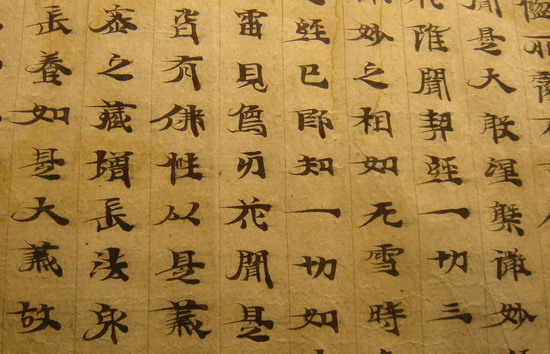 聞是大般涅槃微妙
雖聞契經一切三
妙之相如无雷時
經已即知一切如
雷見象牙花聞是
皆有佛性以是義
密之藏增長法身
長養如是大義故